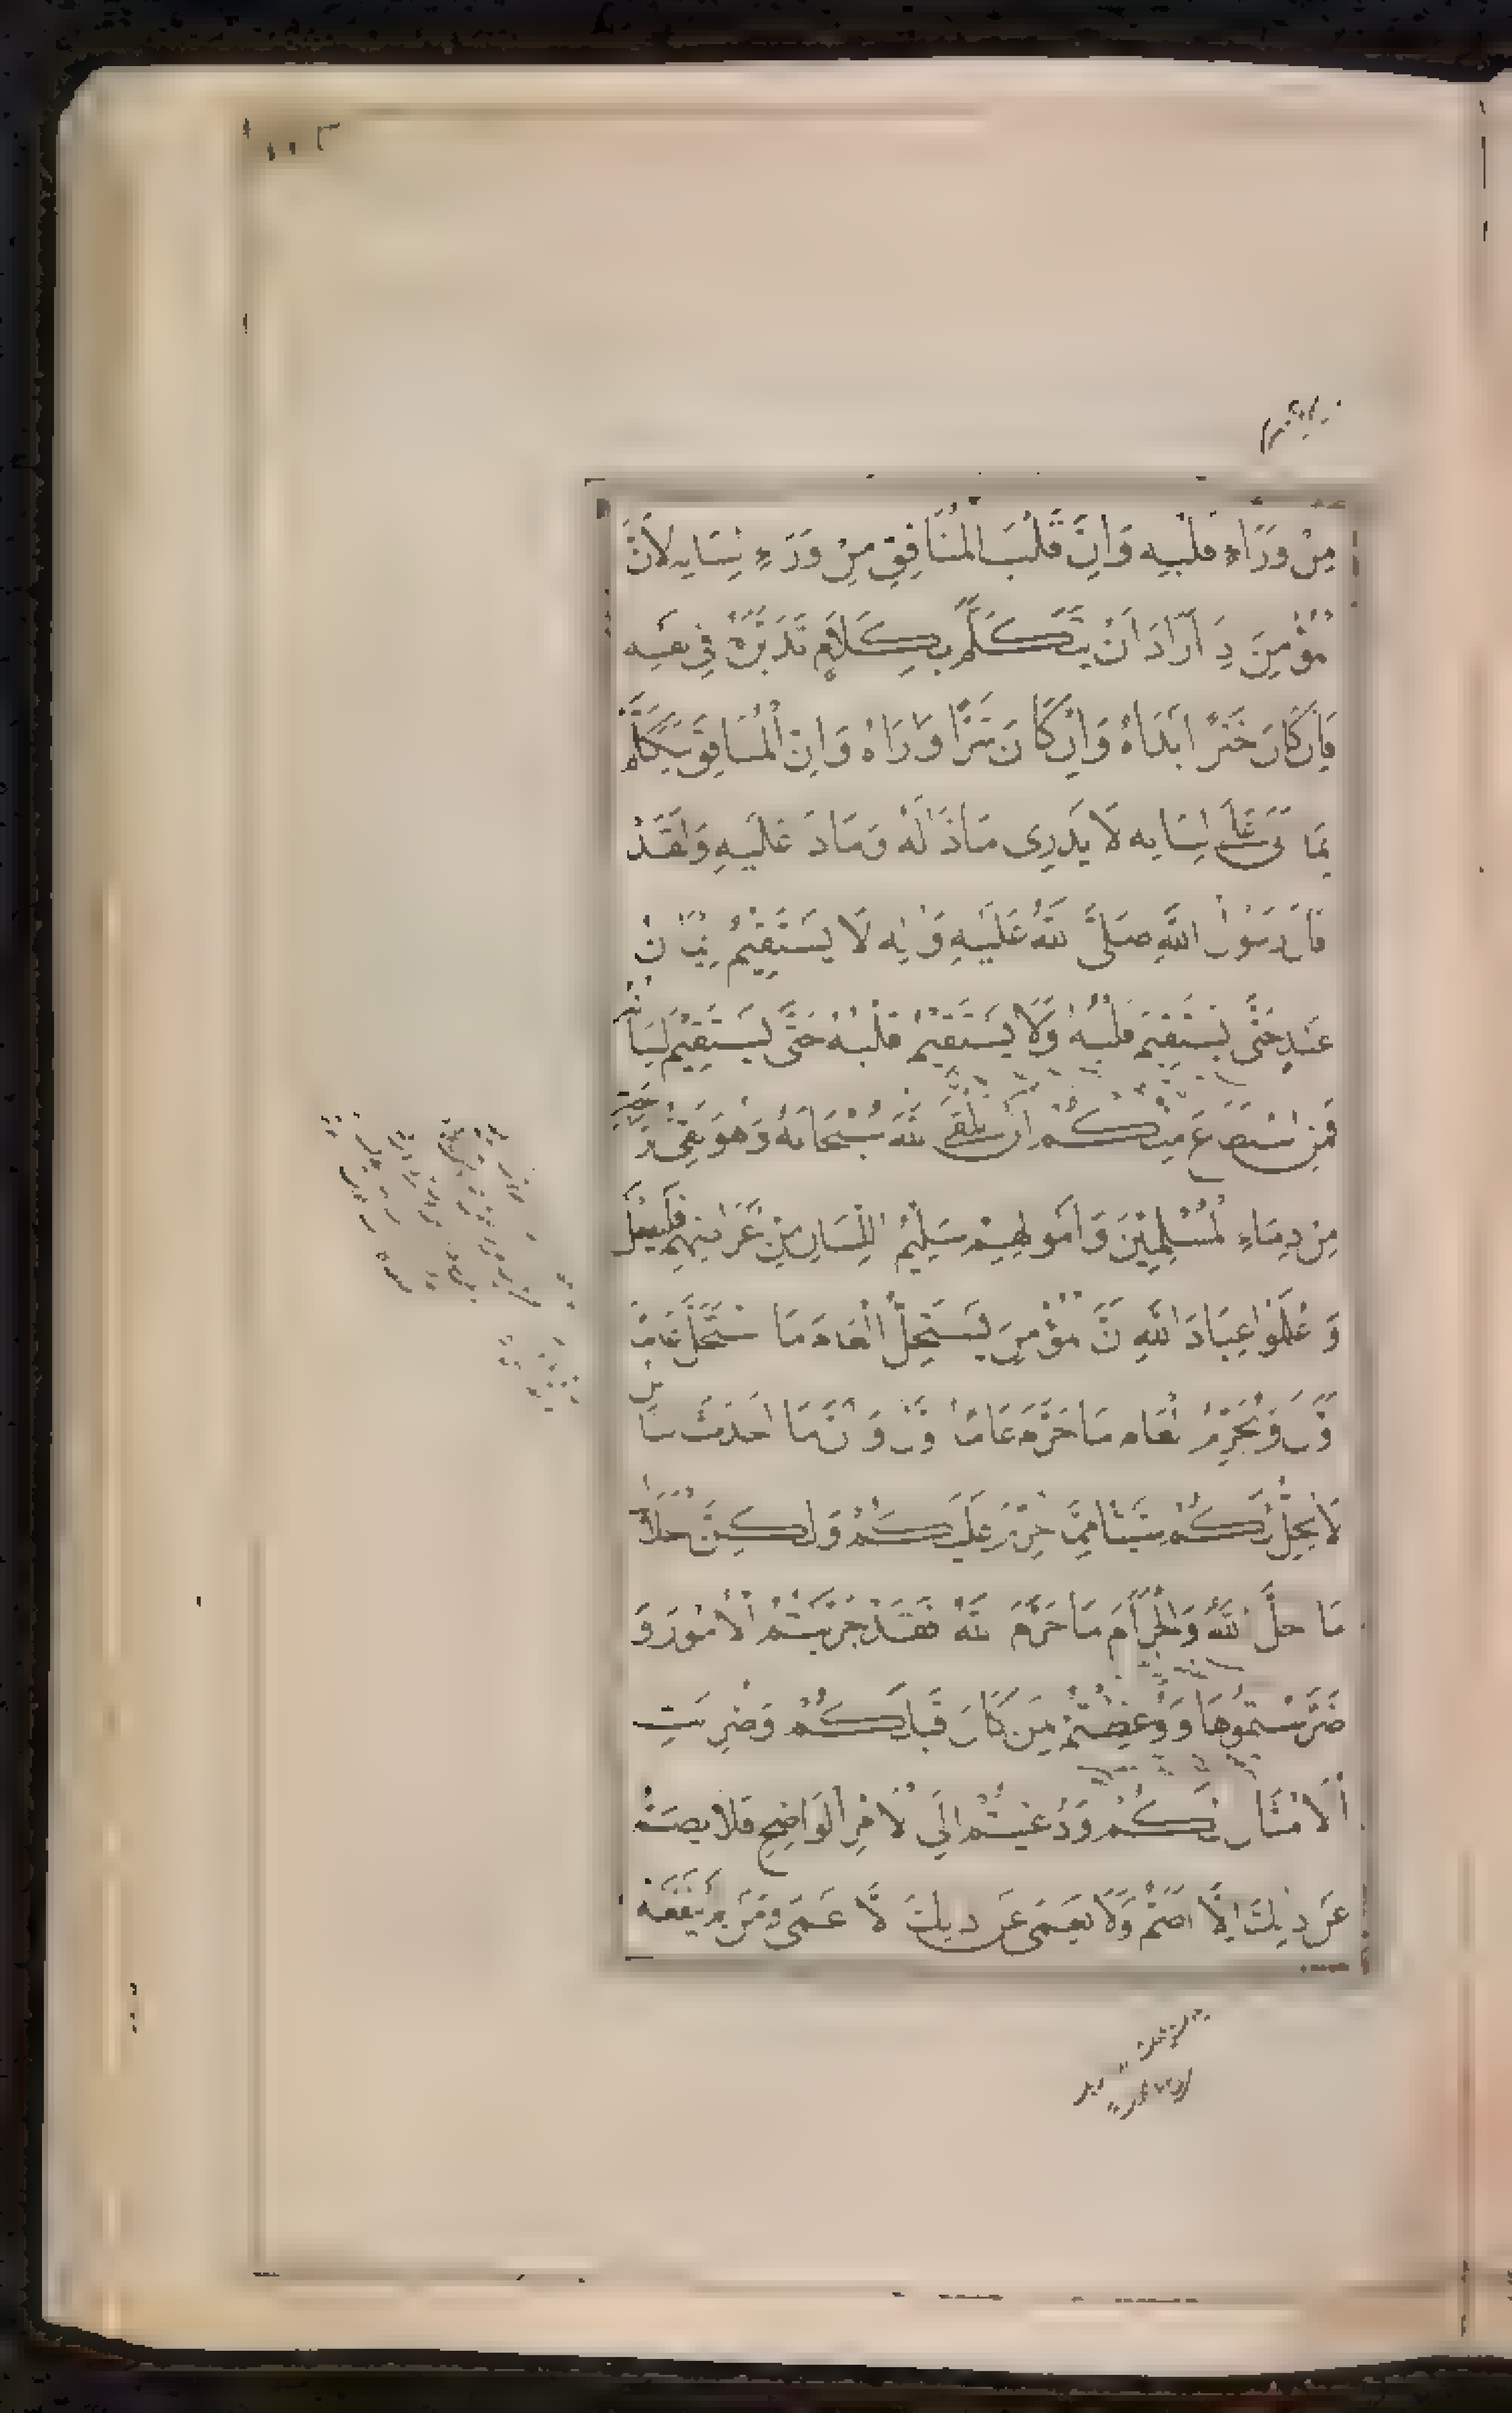 مِنْ وَرَاءِ قَلْبِهِ وَاِنَّ قَلْبَ الْمُنَافِقِ مِنْ وَرَاءِ لِسَانِهِ لِاَنَّ
الْمُؤْمِنَ اِذَا اَرَادَ اَنْ يَتَكَلَّمَ بِكَلَامٍ تَدَبَّرَهُ فِي نَفْسِهِ
فَاِنْ كَانَ خَيْرًا اَبْدَاهُ وَاِنْ كَانَ شَرًّا وَارَاهُ وَاِنَّ الْمُنَافِقَ يَتَكَلَّمُ
بِمَا اَتَى عَلَى لِسَانِهِ لَا يَدْرِى مَاذَا لَهُ وَمَاذَا عَلَيْهِ وَلَقَدْ
قَالَ رَسُولُ اللهِ صَلَّى اللهُ عَلَيْهِ وَاٰلِهِ لَا يَسْتَقِيْمُ اِيْمَانُ
عَبْدٍ حَتَّى يَسْتَقِيْمَ قَلْبُهُ وَلَا يَسْتَقِيْمُ قَلْبُهُ حَتَّى يَسْتَقِيْمَ لِسَانُهُ
فَمَنِ اسْتَطَاعَ مِنْكُمْ اَنْ يَلْقَى اللهَ سُبْحَانَهُ وَهُوَ نَقِىُّ الرَّاحَةِ
مِنْ دِمَاءِ الْمُسْلِمِيْنَ وَاَمْوَالِهِمْ سَلِيْمُ اللِّسَانِ مِنْ اَعْرَاضِهِمْ فَلْيَفْعَلْ
وَاعْلَمُوا عِبَادَ اللهِ اَنَّ الْمُؤْمِنَ يَسْتَحِلُّ الْعَامَ مَا اسْتَحَلَّ عَامًا
اَوَّلَ وَيُحَرِّمُ الْعَامَ مَا حَرَّمَ عَامًا اَوَّلَ وَاَنَّ مَا اَحْدَثَ النَّاسُ
لَا يُحِلُّ لَكُمْ شَيْئًا مِمَّا حُرِّمَ عَلَيْكُمْ وَلٰكِنَّ الْحَلَالَ
مَا اَحَلَّ اللهُ وَالْحَرَامَ مَا حَرَّمَ اللهُ فَقَدْ جَرَّبْتُمُ الْاُمُورَ وَ
ضَرَّسْتُمُوهَا وَوُعِظْتُمْ بِمَنْ كَانَ قَبْلَكُمْ وَضُرِبَتِ
الْاَمْثَالُ لَكُمْ وَدُعِيْتُمْ اِلَى الْاَمْرِ الْوَاضِحِ فَلَا يَصَمُّ
عَنْ ذٰلِكَ اِلَّا اَصَمُّ وَلَا يَعْمَى عَنْ ذٰلِكَ اِلَّا اَعْمَى وَمَنْ لَمْ يَنْفَعْهُ